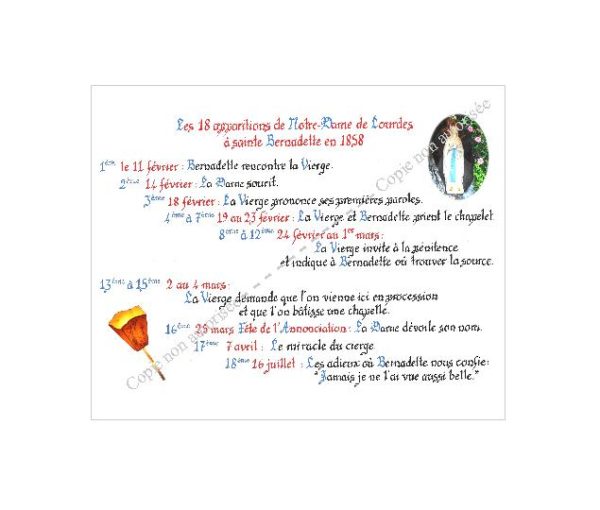 Les 18 apparitions de Notre-Dame de Lourdes
à sainte Bernadette en 1858
1ère le 11 février : Bernadette rencontre la Vierge.
2ème 14 février : La Dame sourit.
3ème 18 février : La Vierge prononce ses premières paroles.
4ème à 7ème 19 au 23 février : La Vierge et Bernadette prient le chapelet
8ème à 12ème 24 février au 1er mars :
La Vierge invite à la pénitence
et indique à Bernadette où trouver la source.
13ème à 15ème 2 au 4 mars :
La Vierge demande que l'on vienne ici en procession
et que l'on bâtisse une chapelle.
16ème 25 mars Fête de l'Annonciation : La Dame dévoile son nom.
17ème 7 avril : Le miracle du cierge.
18ème 16 juillet : Les adieux où Bernadette nous confie :
"Jamais je ne l'ai vue aussi belle."
Copie non autorisée
Copie non autorisée